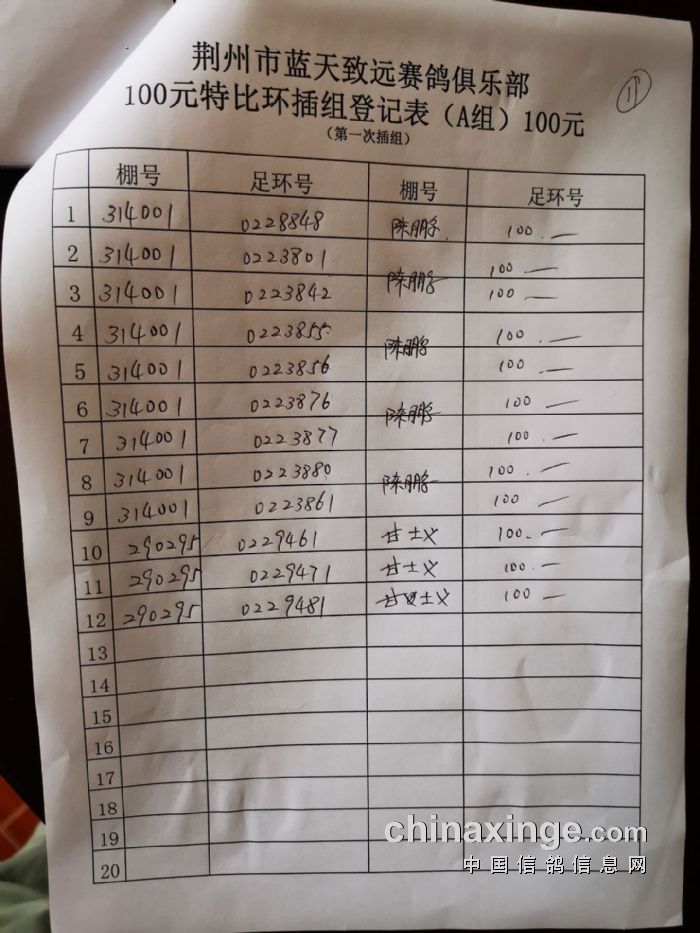 荆州市蓝天致远赛鸽俱乐部
11
100元特比环插组登记表（A组）100元
（第一次插组）
棚号 足环号 棚号 足环号
1 314001 0228848 陈鹏 100.—
2 314001 0223801 100 —
3 314001 0223842 陈鹏 100 —
4 314001 0223855 100 —
5 314001 0223856 陈鹏 100 —
6 314001 0223876 100 —
7 314001 0223877 陈鹏 100 —
8 314001 0223880 100 —
9 314001 0223861 陈鹏 100 —
10 290295 0229461 甘士义 100.—
11 290295 0229471 甘士义 100.—
12 290295 0229481 甘士义 100 —
13
14
15
16
17
18
19
20
chinaxinge.com
中国信鸽信息网